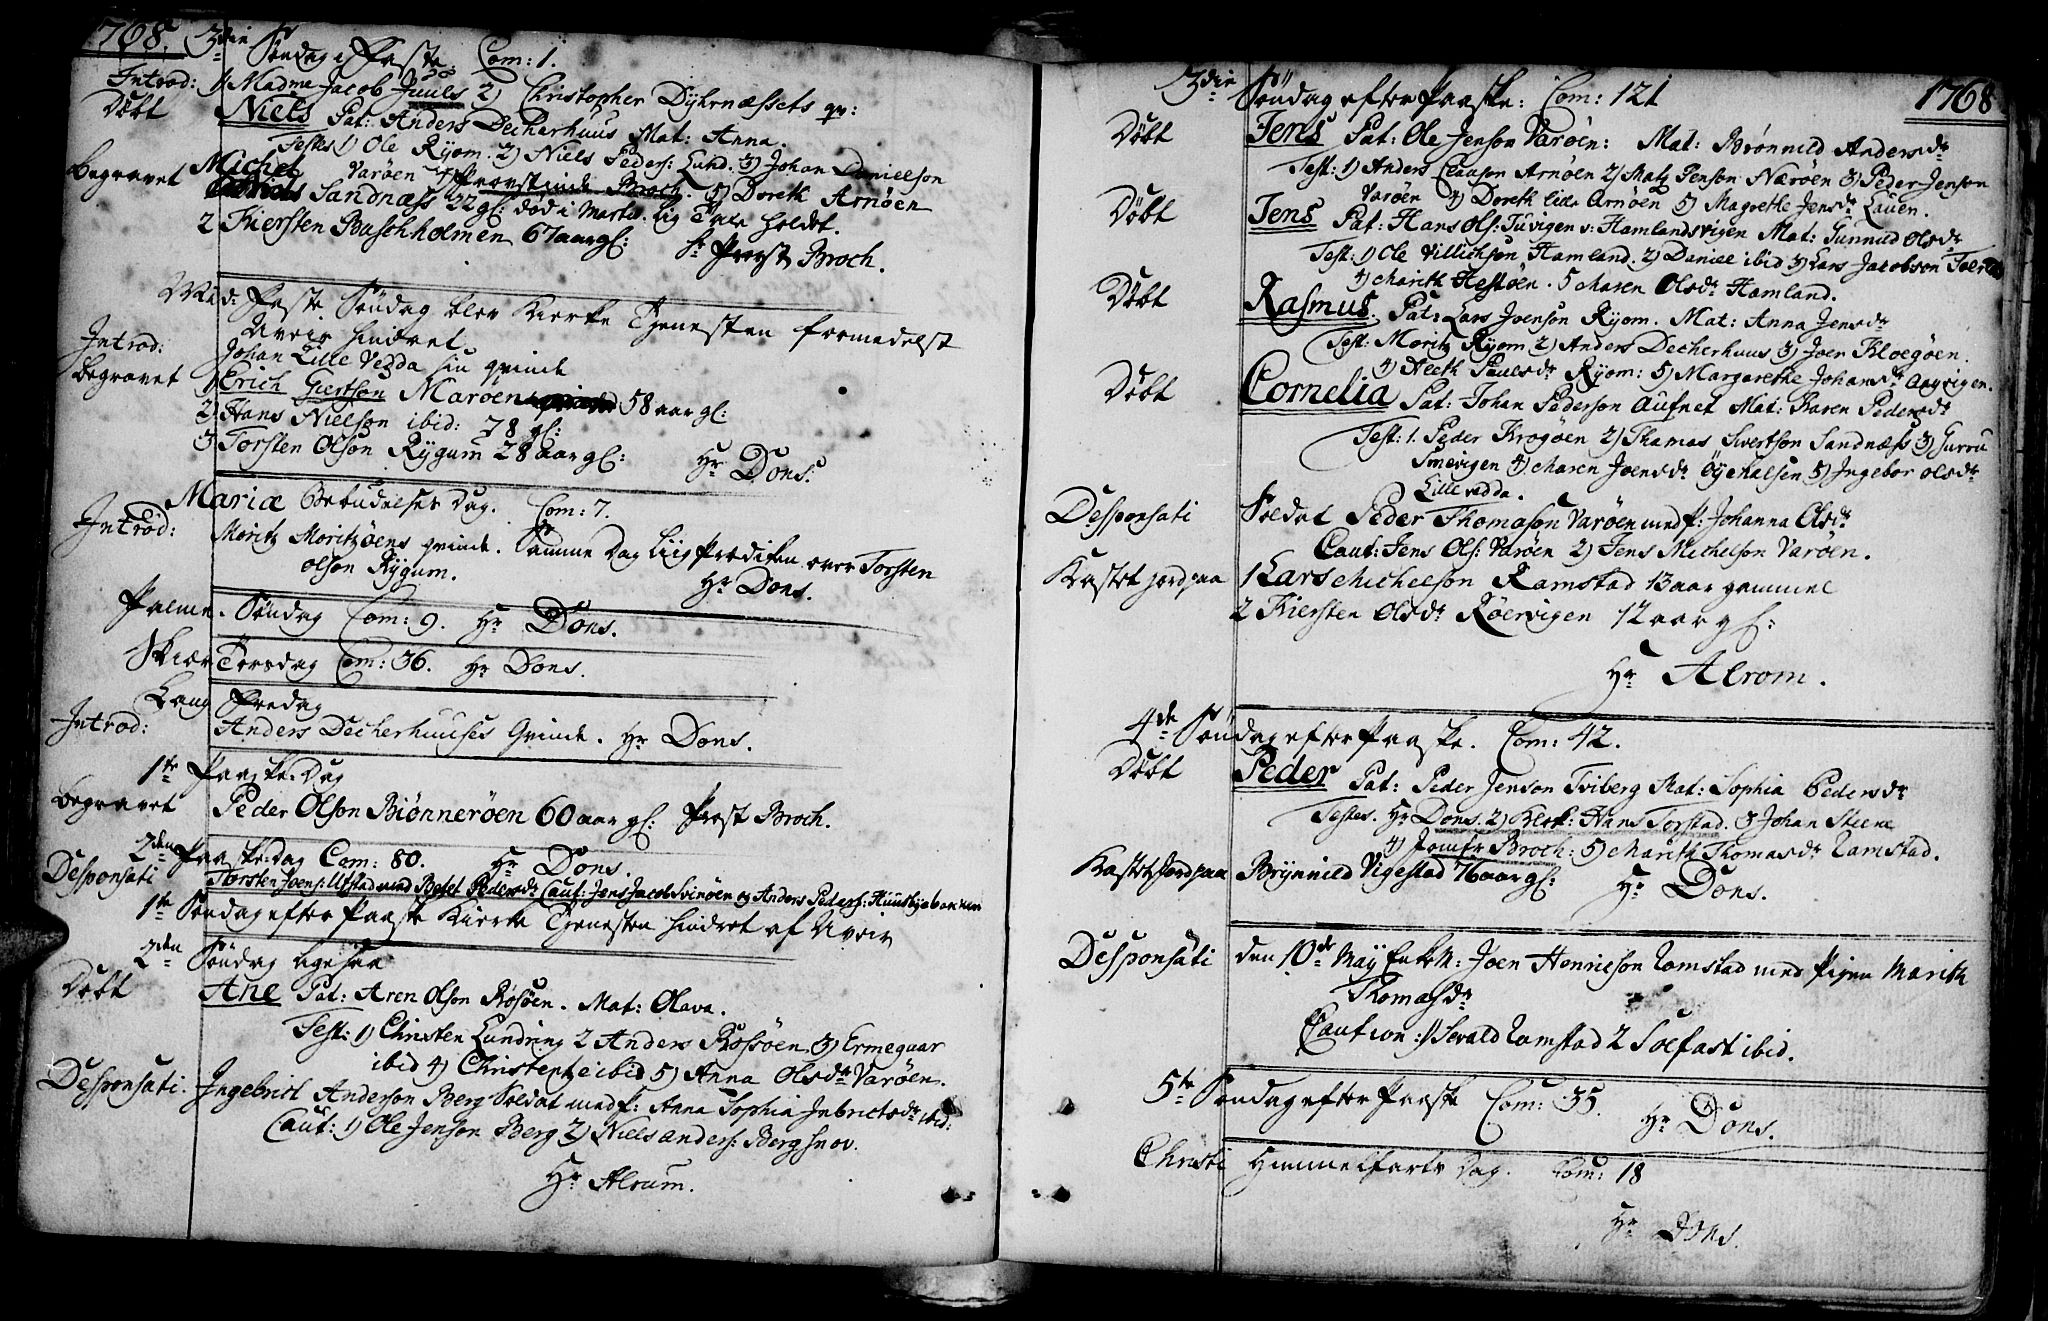 1768. 3die Søndag i Faste. Com: 1.
Introd: 1) Madme Jacob Juuls 2) Christopher Dyhrnæssets qv:
Døbt Niels Pat: Anders Decherhuus Mat: Anna.
Testes 1) Ole Ryom. 2) Niels Peders: Lund. 3) Johan Danielson
Varøen 4) Provstinde Broch. 5) Doreth Arnøen
Begravet Michel Sandnæss 22 gl: død i Martii. Lig Tale holdet.
2 Kiersten Baschholmen 67 aar gl: hr Provst Broch.
Mid: Faste Søndag blev Kierke Tjenesten formedelst
Uveir hindret
Introd: Johan Lille Vedda sin qvinde
Begravet 1) Erich Giertson Marøen 58 aar gl:
2) Hans Nielson ibid: 78 gl:
3 Torsten Olson Rygum 28 aar gl: Hr Dons.
Mariæ Bebudelses Dag. Com: 7.
Introd: Moritz Moritzøens qvinde. Samme Dag Liig Prædiken over Torsten
olson Rygum. Hr Dons.
Palme. Søndag Com: 9. Hr Dons.
Skiær Torsdag Com: 36. Hr Dons.
Lang Fredag
Introd: Anders Decherhuuses Qvinde. Hr Dons.
1te Paaske Dag
Begravet Peder Olson Biønnerøen 60 aar gl: Provst Broch.
2den Paaske Dag Com: 80. Hr Dons.
Desponsati Torsten Joens: Utstad med Beret Pedersdr Caut: Jens Jacobs: Svinøen og Anders Peders: Huusbye
1te Søndag efter Paaske Kierke Tjenesten hindret af Uveir
2den Søndag ligesaa
Døbt Ane Pat: Aren Olson Røsøen. Mat: Olava.
Test: 1) Christen Lundring 2 Anders Rossøen 3) Ermeguar
ibid 4) Christentze ibid 5) Anna Olsdr Varøen.
Desponsati. Ingebrict Anderson Berg Soldat med p: Anna Sophia Inbrictsdr ibid:
Caut: 1) Ole Jenson Berg 2) Niels Anders: Bergsnov.
Hr Alrum.
3die Søndag efter Paaske: Com: 121 1768
Døbt Jens Pat: Ole Jenson Varøen: Mat: Brønnild Andersdr
Test: 1) Anders Clauson Arnøen 2) Matz Jenson Nærøen 3) Peder Jenson
Varøen 4) Doreth lide Arnøen 5) Magrethe Jensdr Lauen.
Døbt Jens Pat: Hans Ols: Juvigen v: Hamlandsvigen Mat: Gunnild Olsdr
Test: 1) Ole Villichson Hamland. 2) Daniel ibid 3) Lars Jacobson
4) Marith Hestøen. 5 Maren Olsdr Hamland.
Døbt Rasmus. Pat: Lars Joenson Ryom. Mat: Anna Jensdr
Test: Moritz Ryom 2) Anders Decherhuus 3) Joen Kloegøen.
4) Aleth Paulsdr Ryom: 5) Margarethe Johansdr Aagvigen.
Døbt Cornelia Pat: Johan Pederson Aufnet Mat: Karen Pedersdr
Test: 1. Peder Krogøen 2) Thomas Sivertson Sandnæss 3) Gurru
Smevigen 4) Maren Joensdr Øyehalsen 5) Ingebor olsdr
Lille vedda.
Desponsati Soldat Peder Thomason Varøen med p: Johanna Olsdr
Caut: Jens Ols: Varøen 2) Jens Michelson Varøen.
Kastet jord paa 1 Lars Michelson Ramstad 13 aar gammel
2 Kiersten Olsdr Røervigen 12 aar gl:
Hr Alrom.
4de Søndag efter Paaske. Com: 42.
Døbt Peder Pat: Peder Jenson Tviberg Mat: Sophia Pedersdr
Testes. Hr Dons. 2) Klok: Hans Torstad. 3 Johan Steene
4) Jomfr Broch: 5) Marith Thomasdr Ramstad.
Kastet Jord paa Brynnild Vigestad 76 aar gl: Hr Dons.
Desponsati den 10de May Enkem: Joen Henricson Ramstad med Pigen Marith
Thomasdr
Caution: 1) Sevald Ramstad 2 Solfast ibid.
5te Søndag efter Paaske Com: 35. Hr Dons.
Christi Himmelfarts Dag. Com: 18
Hr Dons.